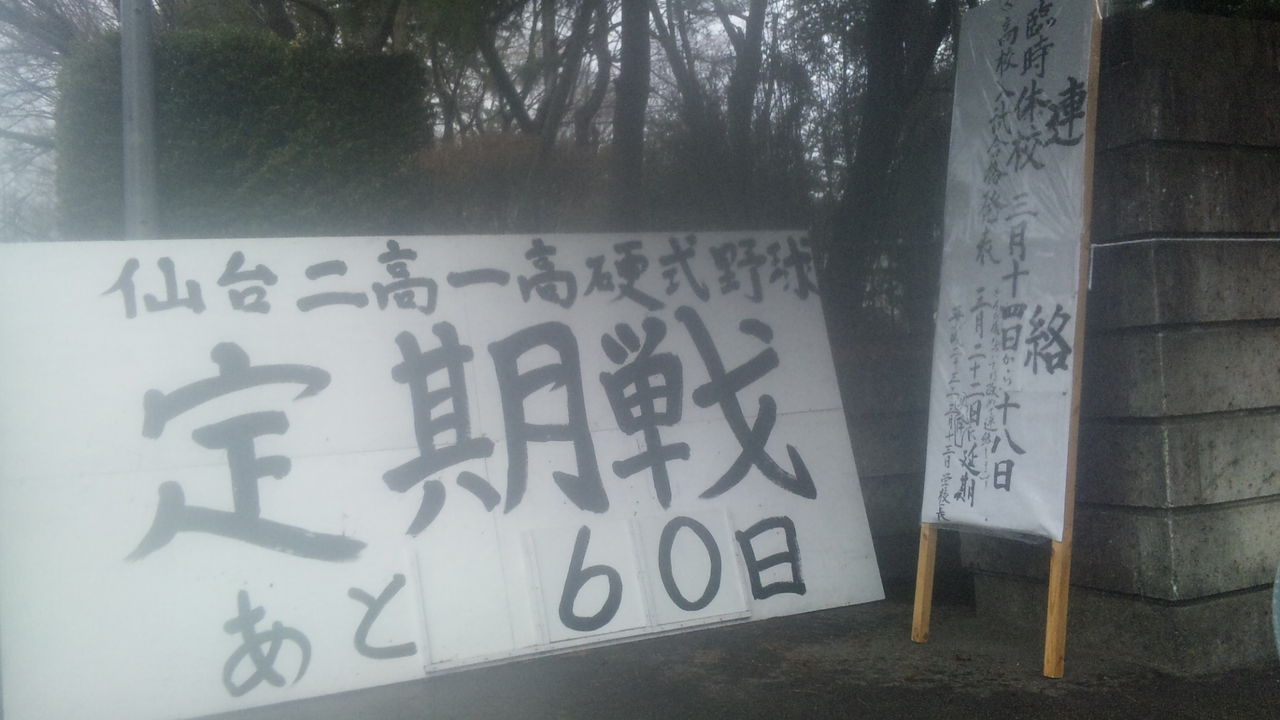 仙台二高一高硬式野球
定期戦
あと60日
連絡
臨時休校 三月十四日から十八日
高校 合格発表 三月二十二日に延期
平成二十三年三月十三日 学校長